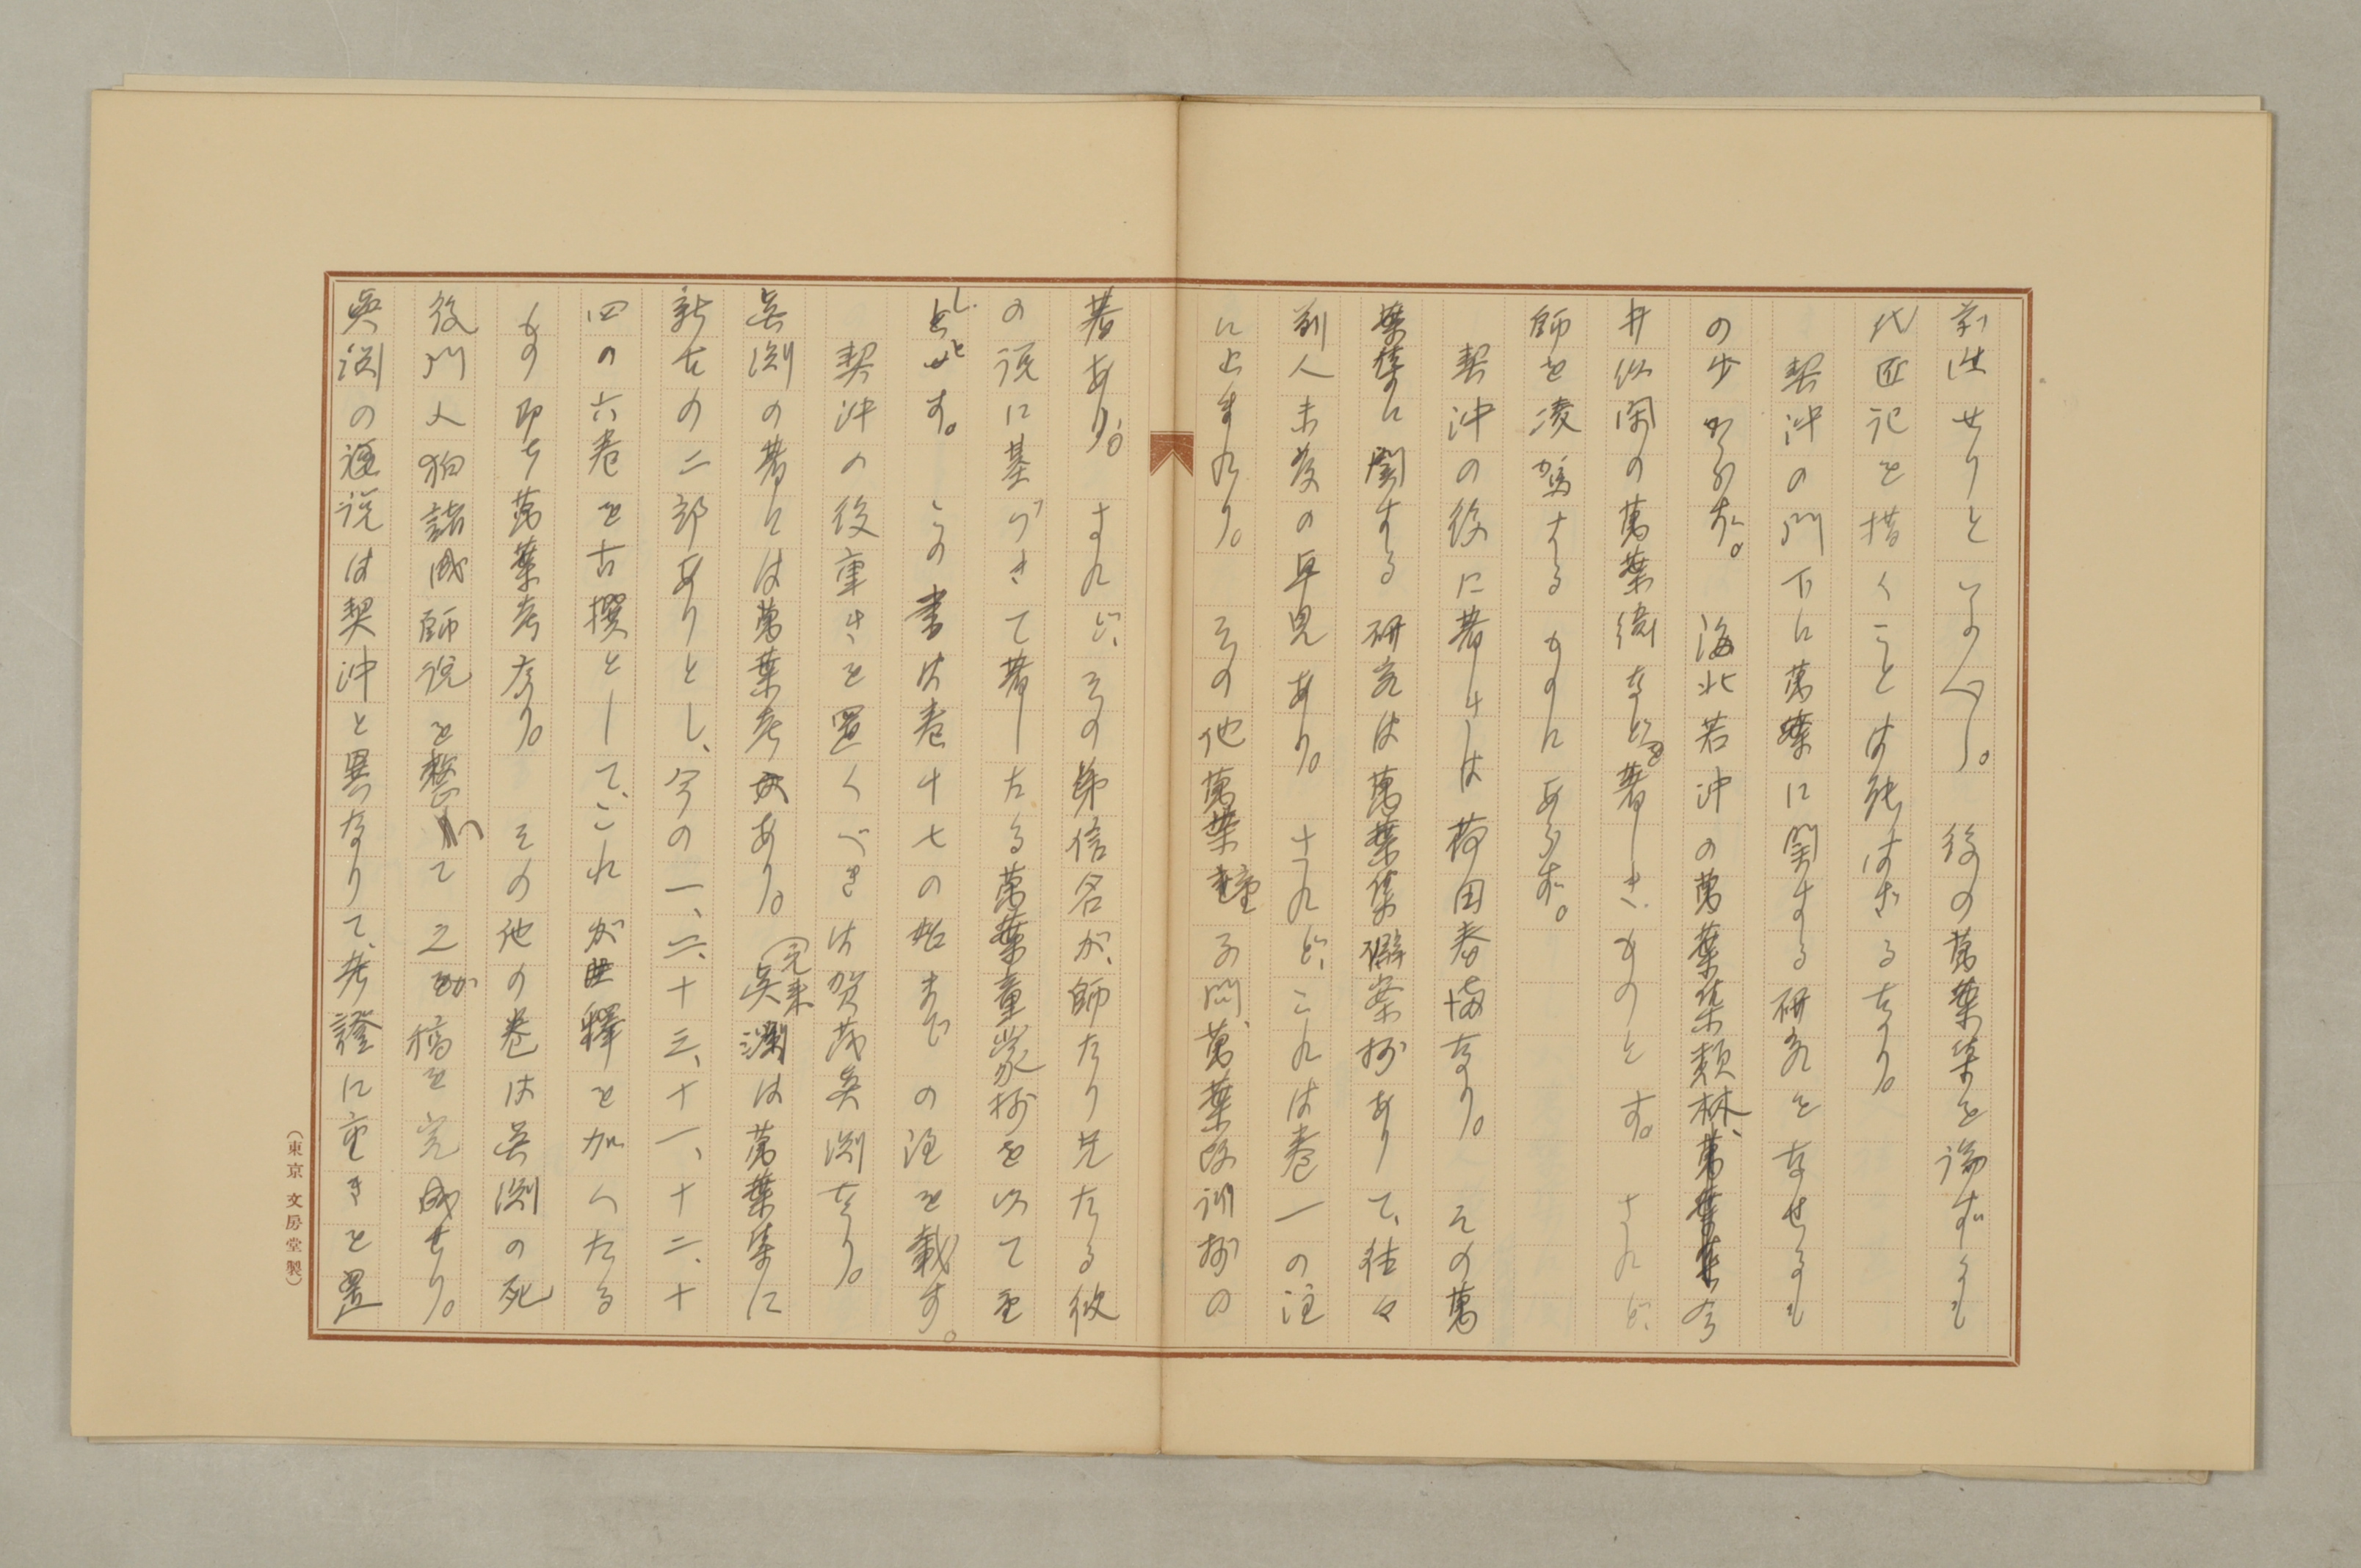 前進せりといふべし。 後の萬葉集を論ずるもの
代匠記を措くことは能はざるなり。
契沖の門下に萬葉に關する研究をなせるもの
の少からず。 海北若沖の萬葉集類林、今
井似閑の萬葉緯などを著しきものとす。 されど、
師を凌駕するものにあらず。
契沖の後に著しきは荷田春満なり。 その萬
葉集に關する研究は萬葉集僻案抄ありて、往々
前人未發の卓見あり。 されど、これは巻一の注
に止まれり。 その他萬葉童子問、萬葉改訓抄の
著あり。 されど、その弟信名が、師たり兄たる彼
の説に基づきて著したる萬葉童蒙抄を以て重
しとす。 この書は巻十七の始までの注を載す。
契沖の後重きを置くべきは賀茂眞淵なり。
眞淵の著には萬葉考あり。 (元来)眞淵は萬葉集に
新古の二部ありとし、今の一、二、十三、十一、十二、十
四の六巻を古撰として、これが註釋を加へたる
もの即ち萬葉考なり。 その他の巻は眞淵の死
後門人狛諸成師説を整へて之が稿を完成せり。
眞淵の所説は契沖と異なりて、考證に重きを置
(東京 文房堂製)